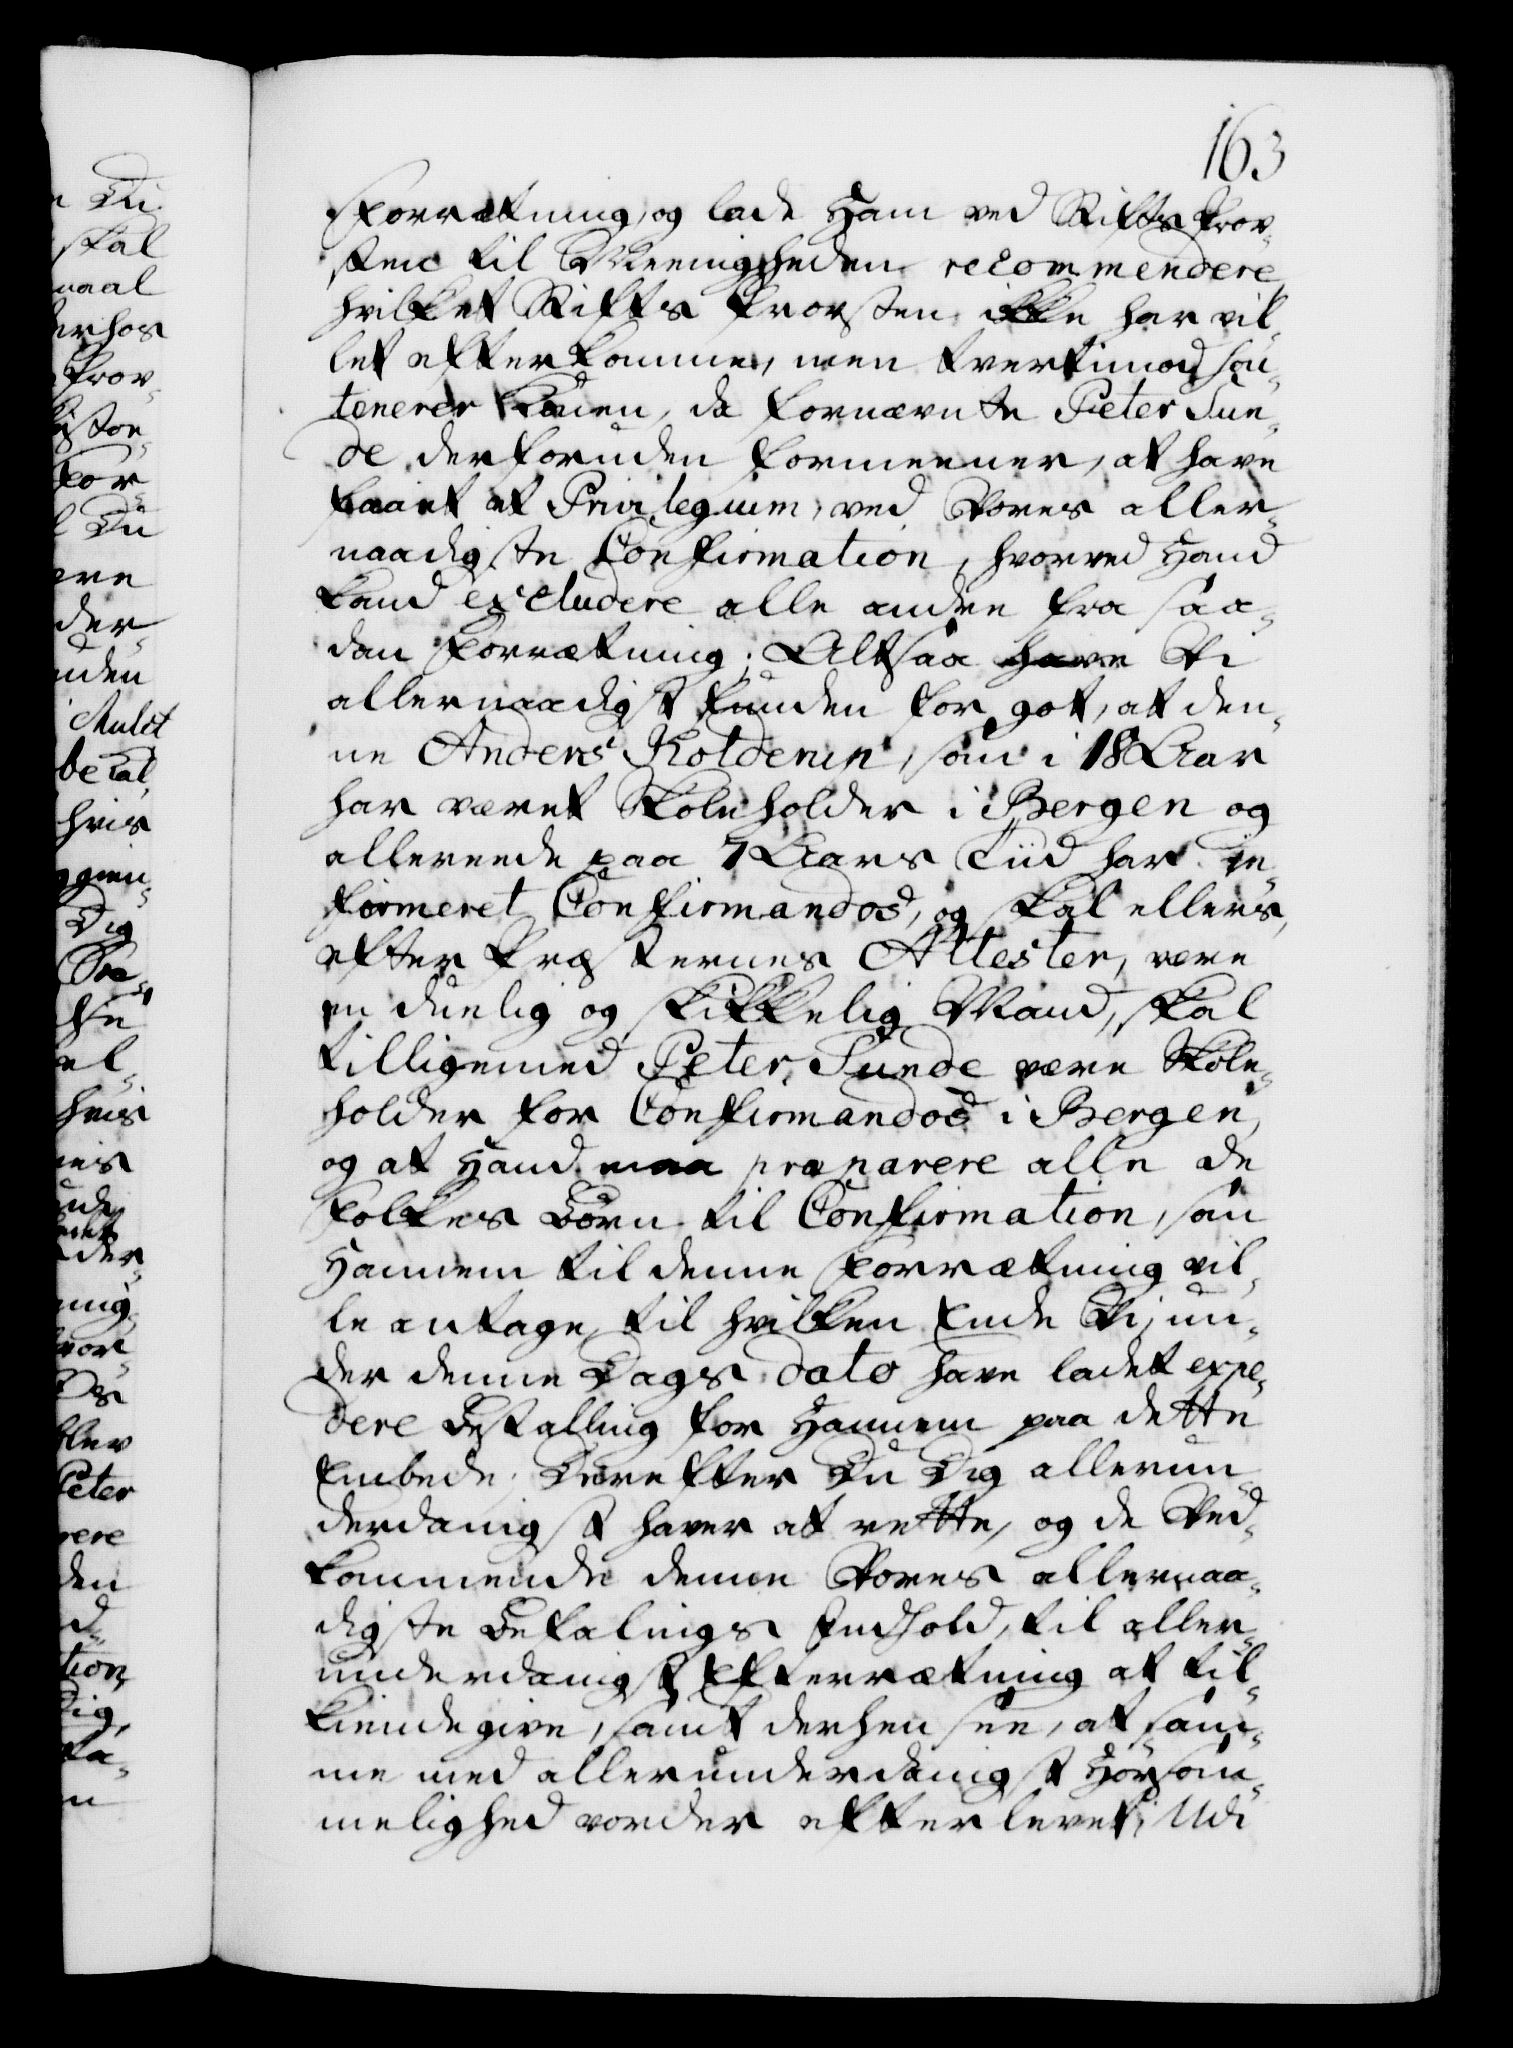 163
Forretning, og lade Ham ved Stifts Prov-
sten til Meenigheden recommendere,
hvilket Stifts Provsten ikke har vil-
let efterkomme, men tvertimod sou-
tenerer Een, da fornævnte Peter Sun-
de derforuden formeener, at have
faaet et Privilegium, ved Vores aller-
naadigste Confirmation, hvorved Hand
kand excludere alle andre fra saa-
dan Forretning; Altsaa have Vi
allernaadigst funden for got, at den-
ne Anders Kolderin, som i 18 Aar
har været Skoleholder i Bergen og
allereede paa 7 Aars Tiid har in-
formeret Confirmandos, og skal ellers,
efter Præsternes Attester, være
en duelig og skikkelig Mand, skal
tilligemed Peter Sunde være Skole-
holder for Confirmandos i Bergen,
og at Hand maa præparere alle de
Folkes Børn til Confirmation, som
Hannem til denne Forretning vil-
le antage, til hvilken Ende Vi, un-
der denne Dags dato have ladet expe-
dere Bestalling for Hannem paa dette
Embede. Derefter Du Dig allerun-
derdanigst haver at rette, og de Ved-
kommende denne Vores allernaa-
digste Befalings Indhold, til aller-
underdanigst Efterretning at til-
kiendegive, samt derhen see, at sam-
me med allerunderdanigst Hørsom-
melighed vorder efterlevet; Udi